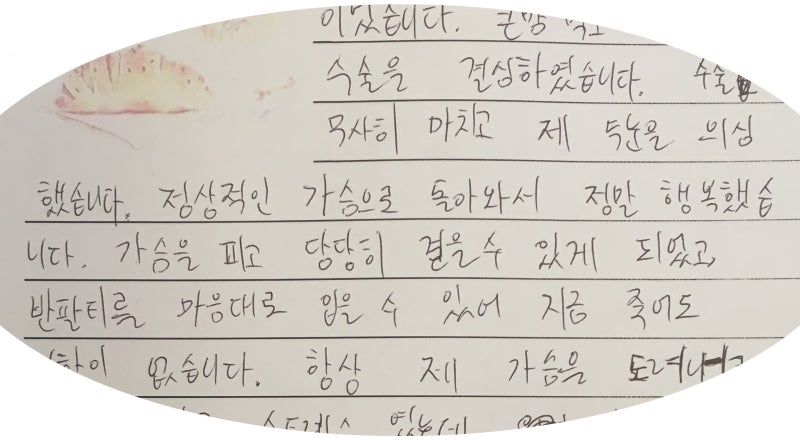 이있습니다. 큰맘 먹고
수술을 결심하였습니다. 수술
무사히 마치고 제 두눈을 의심
했습니다. 정상적인 가슴으로 돌아와서 정말 행복했습
니다. 가슴을 피고 당당히 걸을수 있게 되었고,
반팔티를 마음대로 입을 수 있어 지금 죽어도
없습니다. 항상 제 가슴을 도려내고